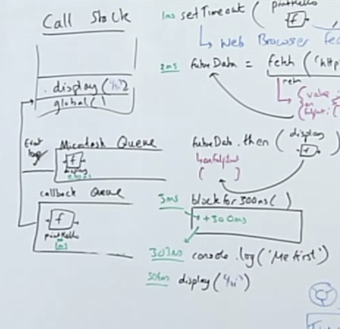 Call Stack
display('Hi')
global()
Event
loop
Microtask Queue
f
display
callback Queue
f
printHello
1ms setTimeout(
printHello
f
Web Browser
2ms futureData = fetch('http
{value:
futureData.then(display
f
3ms blockfor300ms()
+300ms
console.log('Me first')
display('Hi')